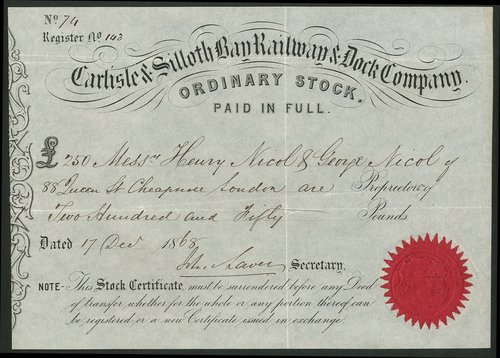 No 74
Register No 143
Carlisle & Silloth Bay Railway & Dock Company.
ORDINARY STOCK.
PAID IN FULL.
£250 Messrs Henry Nicol & George Nicol of
88 Queen St Cheapside London are Proprietors of
Two Hundred and Fifty Pounds
Dated 17 Dec 1868
Secretary.
NOTE - This Stock Certificate must be surrendered before any Deed
of transfer, whether for the whole or any portion thereof can
be registered or a new Certificate issued in exchange.